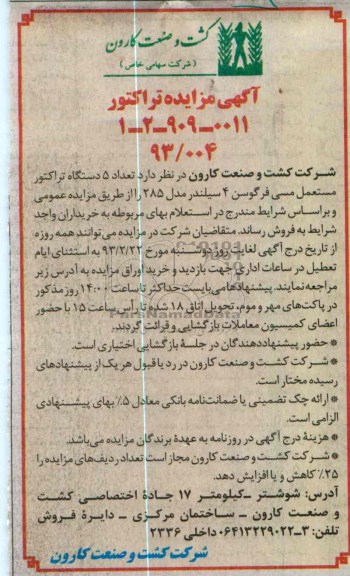 کشت و صنعت کارون
(شرکت سهامی خاص)
آگهی مزایده تراکتور
۱-۲-۹۰۹-۰۰۱۱
۹۳/۰۰۴
شرکت کشت و صنعت کارون در نظر دارد تعداد ۵ دستگاه تراکتور
مستعمل مسی فرگوسن ۴ سیلندر مدل ۲۸۵ را از طریق مزایده عمومی
و براساس شرایط مندرج در استعلام بهای مربوطه به خریداران واجد
شرایط به فروش رساند. متقاضیان شرکت در مزایده می‌توانند همه روزه
از تاریخ درج آگهی لغایت روز دوشنبه مورخ ۹۳/۲/۲۲ به استثنای ایام
تعطیل در ساعات اداری جهت بازدید و خرید اوراق مزایده به آدرس زیر
مراجعه نمایند. پیشنهادها می‌بایست حداکثر تا ساعت ۱۴:۰۰ روز مذکور
در پاکت‌های مهر و موم، تحویل اتاق ۱۸ شده تا رأس ساعت ۱۵ با حضور
اعضای کمیسیون معاملات بازگشایی و قرائت گردند.
* حضور پیشنهاددهندگان در جلسهٔ بازگشایی اختیاری است.
* شرکت کشت و صنعت کارون در رد یا قبول هر یک از پیشنهادهای
رسیده مختار است.
* ارائه چک تضمینی یا ضمانت‌نامه بانکی معادل ۵٪ بهای پیشنهادی
الزامی است.
* هزینهٔ درج آگهی در روزنامه به عهدهٔ برندگان مزایده می‌باشد.
* شرکت کشت و صنعت کارون مجاز است تعداد ردیف‌های مزایده را
۲۵٪ کاهش و یا افزایش دهد.
آدرس: شوشتر - کیلومتر ۱۷ جادهٔ اختصاصی کشت
و صنعت کارون - ساختمان مرکزی - دایرهٔ فروش
تلفن: ۳-۰۶۴۱۳۲۲۹۰۲۲ داخلی ۲۳۳۶
شرکت کشت و صنعت کارون